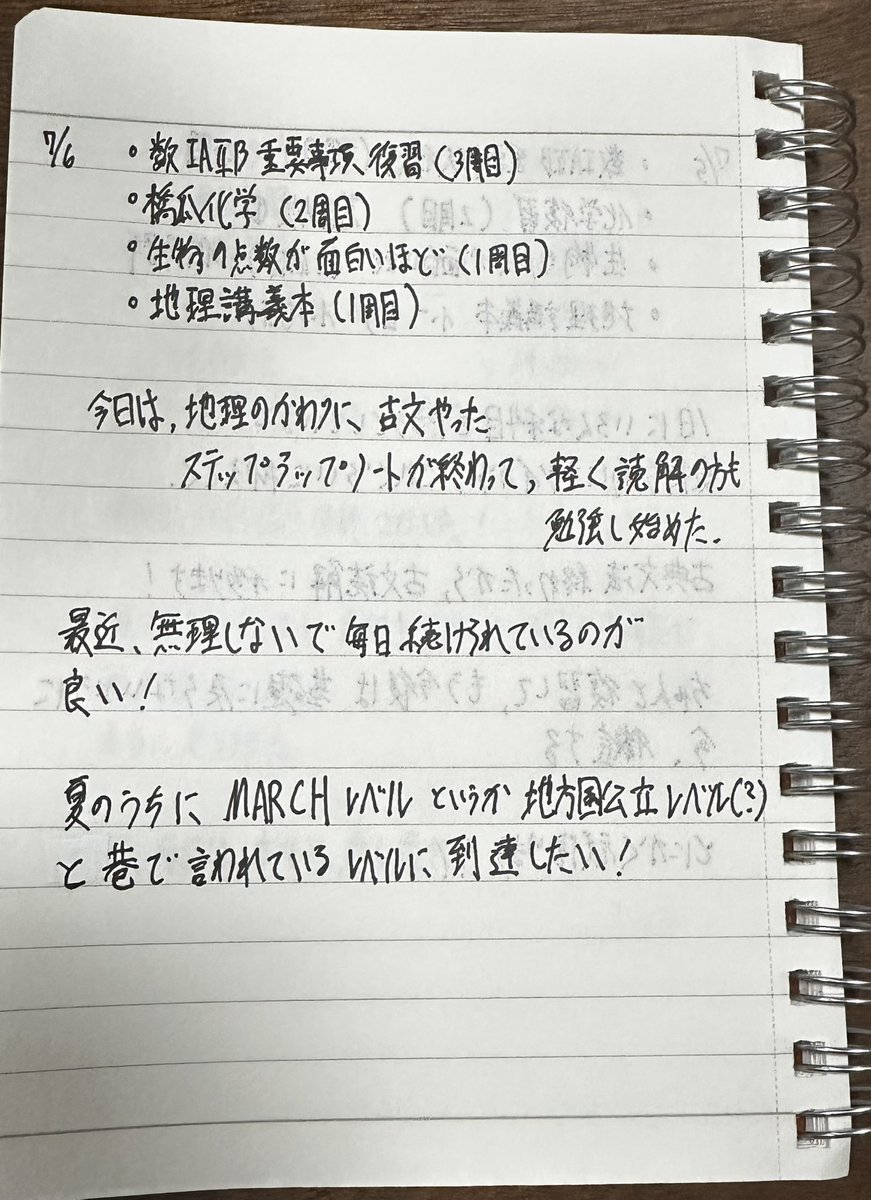 7/6 ・数ⅠAⅡB 重要事項復習(3周目)
・橋爪化学(2周目)
・生物の点数が面白いほど(1周目)
・地理講義本(1周目)
今日は、地理のかわりに、古文やった
ステップアップノートが終わって、軽く読解の方も
勉強し始めた.
最近、無理しないで毎日続けられているのが
良い!
夏のうちに MARCHレベルというか地方国公立レベル(?)
と巷で言われているレベルに到達したい!